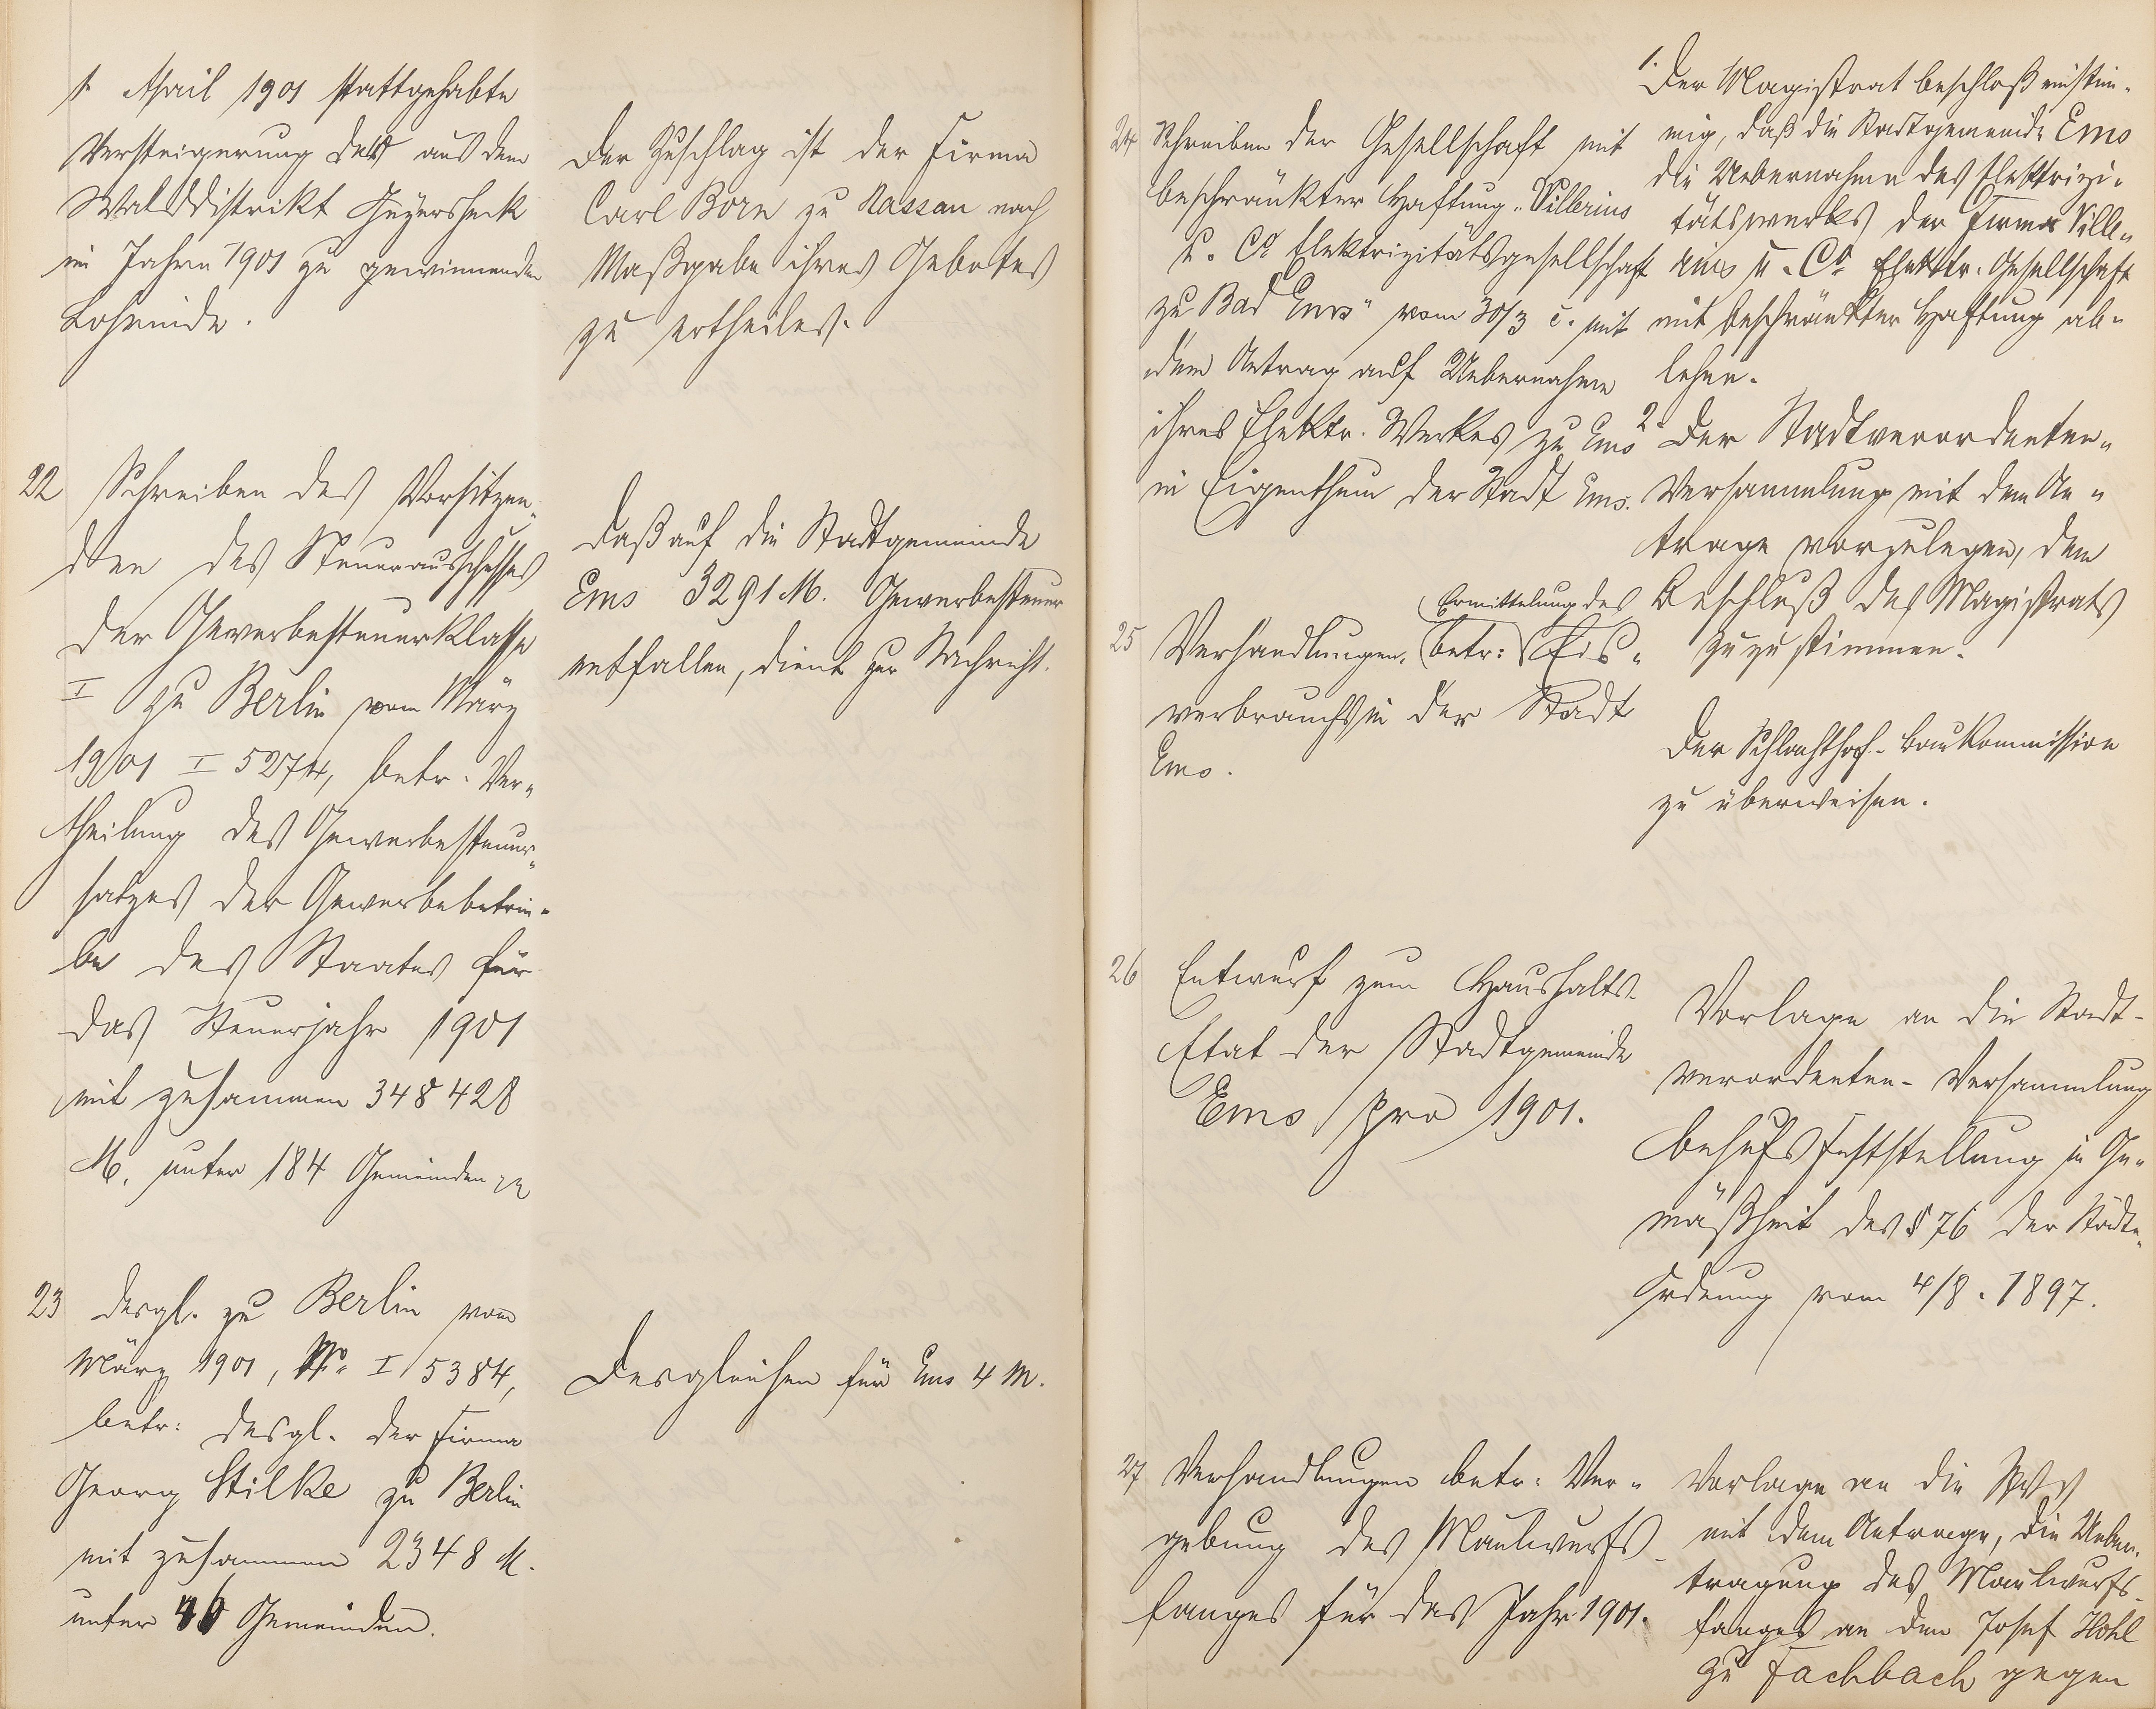 1. April 1901 stattgehabte
Versteigerung der aus dem
Walddistrikt Geyersheck
im Jahre 1901 zu gewinnenden
Lohrinde.
Der Zuschlag ist der Firma
Carl Born zu Nassau nach
Maßgabe ihres Gebotes
zu ertheilen.
22 Schreiben des Vorsitzen-
den des Steuerausschusses
der Gewerbesteuerklasse
I zu Berlin vom März
1901 I 5274, betr. Ver-
theilung des Gewerbesteuer-
satzes der Gewerbebetrie-
be des Staates für
das Steuerjahr 1901
mit zusammen 348 428
M. unter 184 Gemeinden
Daß auf die Stadtgemeinde
Ems 3291 M. Gewerbesteuer
entfallen, dient zur Nachricht.
23 desgl. zu Berlin vom
März 1901, No. I 5384,
betr: desgl. der Firma
Georg Stilke zu Berlin
mit zusammen 2348 M.
unter 46 Gemeinden.
Desgleichen für Ems 4 M.
24 Schreiben der Gesellschaft mit
beschränkter Haftung „Villerius
u. Co Elektrizitätsgesellschaft
zu Bad Ems" vom 30/3 c. mit
dem Antrag auf Uebernahme
ihres Elektr. Werkes zu Ems
in Eigenthum der Stadt Ems.
1. Der Magistrat beschloß einstim-
mig, daß die Stadtgemeinde Ems
die Uebernahme des Elektrizi-
tätswerks der Firma Ville-
rius u. Co Elektr. Gesellschaft
mit beschränkter Haftung ab-
lehne.
2. Der Stadtverordneten-
Versammlung mit dem An-
trage vorzulegen, dem
Beschluß des Magistrats
zuzustimmen.
25 Verhandlungen, betr: Ermittelung des Eis-
verbrauchs in der Stadt
Ems.
Der Schlachthof-Baukommission
zu überweisen.
26 Entwurf zum Haushalts-
Etat der Stadtgemeinde
Ems pro 1901.
Vorlage an die Stadt-
verordneten-Versammlung
behufs Feststellung in Ge-
mäßheit des § 76 der Städte-
Ordnung vom 4/8. 1897.
27 Verhandlungen betr: Ver-
gebung des Maulwurfs-
fanges für das Jahr 1901.
Vorlage an die StVV
mit dem Antrage, die Ueber-
tragung des Maulwurfs-
fanges an den Josef Hohl
zu Fachbach gegen